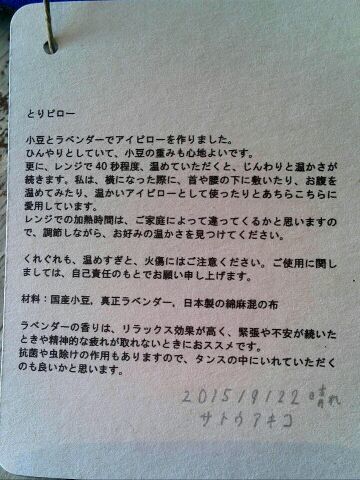 とりピロー
小豆とラベンダーでアイピローを作りました。
ひんやりとしていて、小豆の重みも心地よいです。
更に、レンジで40秒程度、温めていただくと、じんわりと温かさが
続きます。私は、横になった際に、首や腰の下に敷いたり、お腹を
温めてみたり、温かいアイピローとして使ったりとあちらこちらに
愛用しています。
レンジでの加熱時間は、ご家庭によって違ってくるかと思いますの
で、調節しながら、お好みの温かさを見つけてください。
くれぐれも、温めすぎと、火傷にはご注意ください。ご使用に関し
ましては、自己責任のもとでお願い申し上げます。
材料：国産小豆，真正ラベンダー，日本製の綿麻混の布
ラベンダーの香りは、リラックス効果が高く、緊張や不安が続いた
ときや精神的な疲れが取れないときにおススメです。
抗菌や虫除けの作用もありますので、タンスの中にいれていただく
のも良いかと思います。
2015/9/22 晴れ
サトウアキコ